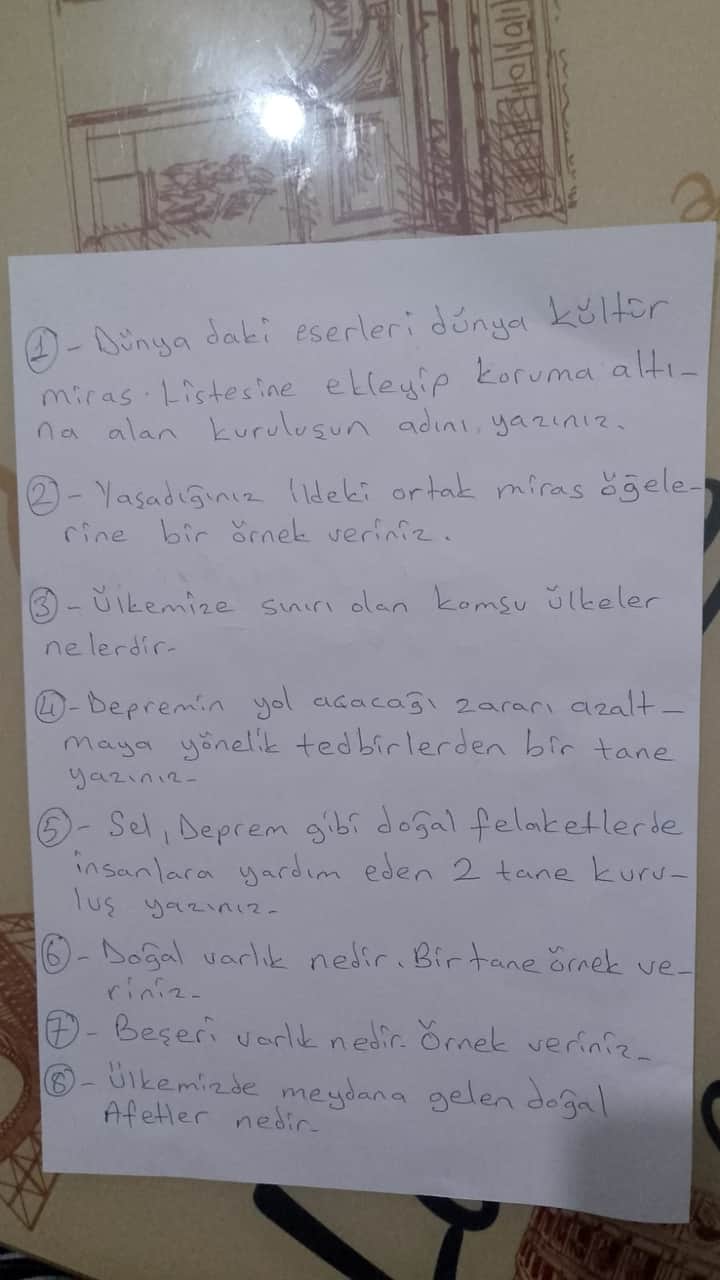 1 - Dünya daki eserleri dünya kültür
miras. Listesine ekleyip koruma altı-
na alan kuruluşun adını yazınız.
2 - Yaşadığınız İldeki ortak miras öğele-
rine bir örnek veriniz.
3 - Ülkemize sınırı olan komşu ülkeler
nelerdir-
4 - Depremin yol açacağı zararı azalt-
maya yönelik tedbirlerden bir tane
yazınız-
5 - Sel, Deprem gibi doğal felaketlerde
insanlara yardım eden 2 tane kuru-
luş yazınız-
6 - Doğal varlık nedir. Bir tane örnek ve-
riniz-
7 - Beşeri varlık nedir. Örnek veriniz-
8 - Ülkemizde meydana gelen doğal
Afetler nedir-